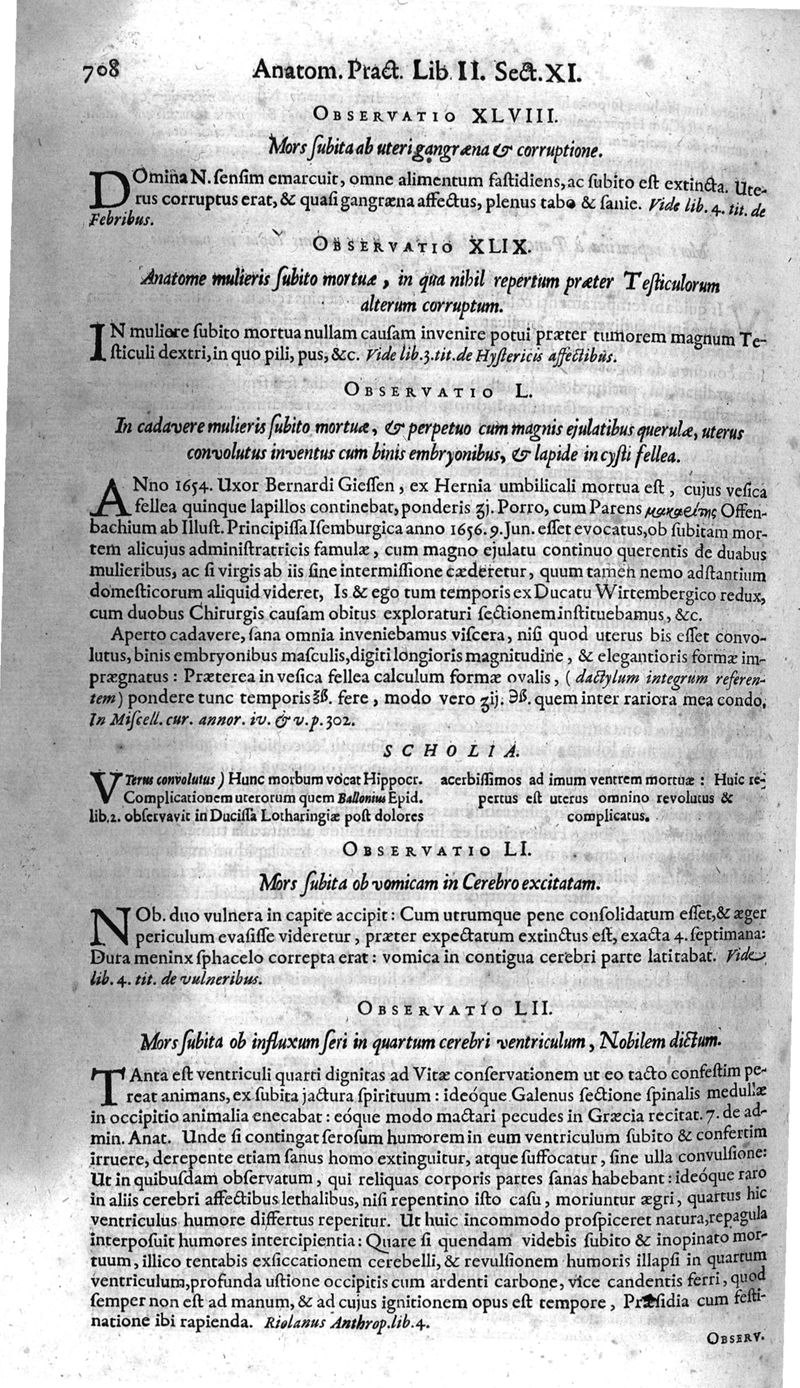 708 Anatom. Pract. Lib II. Sect. XI.
OBSERVATIO XLVIII.
Mors ſubita ab uteri gangræna & corruptione.
DOmina N. ſenſim emarcuit, omne alimentum faſtidiens, ac ſubito eſt extincta. Ute-
rus corruptus erat, & quaſi gangræna affectus, plenus tabo & ſanie. Vide lib. 4. tit. de
Febribus.
OBSERVATIO XLIX.
Anatome mulieris ſubito mortuæ, in qua nihil repertum præter Teſticulorum
alterum corruptum.
IN muliere ſubito mortua nullam cauſam invenire potui præter tumorem magnum Te-
ſticuli dextri, in quo pili, pus, &c. Vide lib. 3. tit. de Hyſtericis affectibus.
OBSERVATIO L.
In cadavere mulieris ſubito mortuæ, & perpetuo cum magnis ejulatibus querulæ, uterus
convolutus inventus cum binis embryonibus, & lapide in cyſti fellea.
ANno 1654. Uxor Bernardi Gieſſen, ex Hernia umbilicali mortua eſt, cujus veſica
fellea quinque lapillos continebat, ponderis ʒj. Porro, cum Parens μακαρίτης Offen-
bachium ab Illuſt. Principiſſa Iſemburgica anno 1656. 9. Jun. eſſet evocatus, ob ſubitam mor-
tem alicujus adminiſtratricis famulæ, cum magno ejulatu continuo querentis de duabus
mulieribus, ac ſi virgis ab iis ſine intermiſſione cæderetur, quum tamen nemo adſtantium
domeſticorum aliquid videret, Is & ego tum temporis ex Ducatu Wirtembergico redux,
cum duobus Chirurgis cauſam obitus exploraturi ſectionem inſtituebamus, &c.
Aperto cadavere, ſana omnia inveniebamus viſcera, niſi quod uterus bis eſſet convo-
lutus, binis embryonibus maſculis, digiti longioris magnitudine, & elegantioris formæ im-
prægnatus: Præterea in veſica fellea calculum formæ ovalis, (dactylum integrum referen-
tem) pondere tunc temporis ℥ß. fere, modo vero ʒij. ℈ß. quem inter rariora mea condo.
In Miſcell. cur. annor. iv. & v. p. 302.
SCHOLIA.
VTerus convolutus) Hunc morbum vocat Hippocr.
Complicationem uterorum quem Ballonius Epid.
lib. 2. obſervavit in Duciſſa Lotharingiæ poſt dolores
acerbiſſimos ad imum ventrem mortuæ: Huic re-
pertus eſt uterus omnino revolutus &
complicatus.
OBSERVATIO LI.
Mors ſubita ob vomicam in Cerebro excitatam.
NOb. duo vulnera in capite accipit: Cum utrumque pene conſolidatum eſſet, & æger
periculum evaſiſſe videretur, præter expectatum extinctus eſt, exacta 4. ſeptimana:
Dura meninx ſphacelo correpta erat: vomica in contigua cerebri parte latitabat. Vide
lib. 4. tit. de vulneribus.
OBSERVATIO LII.
Mors ſubita ob influxum ſeri in quartum cerebri ventriculum, Nobilem dictum.
TAnta eſt ventriculi quarti dignitas ad Vitæ conſervationem ut eo tacto confeſtim pe-
reat animans, ex ſubita jactura ſpirituum: ideóque Galenus ſectione ſpinalis medullæ
in occipitio animalia enecabat: eóque modo mactari pecudes in Græcia recitat. 7. de ad-
min. Anat. Unde ſi contingat ſeroſum humorem in eum ventriculum ſubito & confertim
irruere, derepente etiam ſanus homo extinguitur, atque ſuffocatur, ſine ulla convulſione:
Ut in quibuſdam obſervatum, qui reliquas corporis partes ſanas habebant: ideóque raro
in aliis cerebri affectibus lethalibus, niſi repentino iſto caſu, moriuntur ægri, quartus hic
ventriculus humore differtus reperitur. Ut huic incommodo proſpiceret natura, repagula
interpoſuit humores intercipientia: Quare ſi quendam videbis ſubito & inopinato mor-
tuum, illico tentabis exſiccationem cerebelli, & revulſionem humoris illapſi in quartum
ventriculum, profunda uſtione occipitis cum ardenti carbone, vice candentis ferri, quod
ſemper non eſt ad manum, & ad cujus ignitionem opus eſt tempore, Præſidia cum feſti-
natione ibi rapienda. Riolanus Anthrop. lib. 4.
OBSERV.